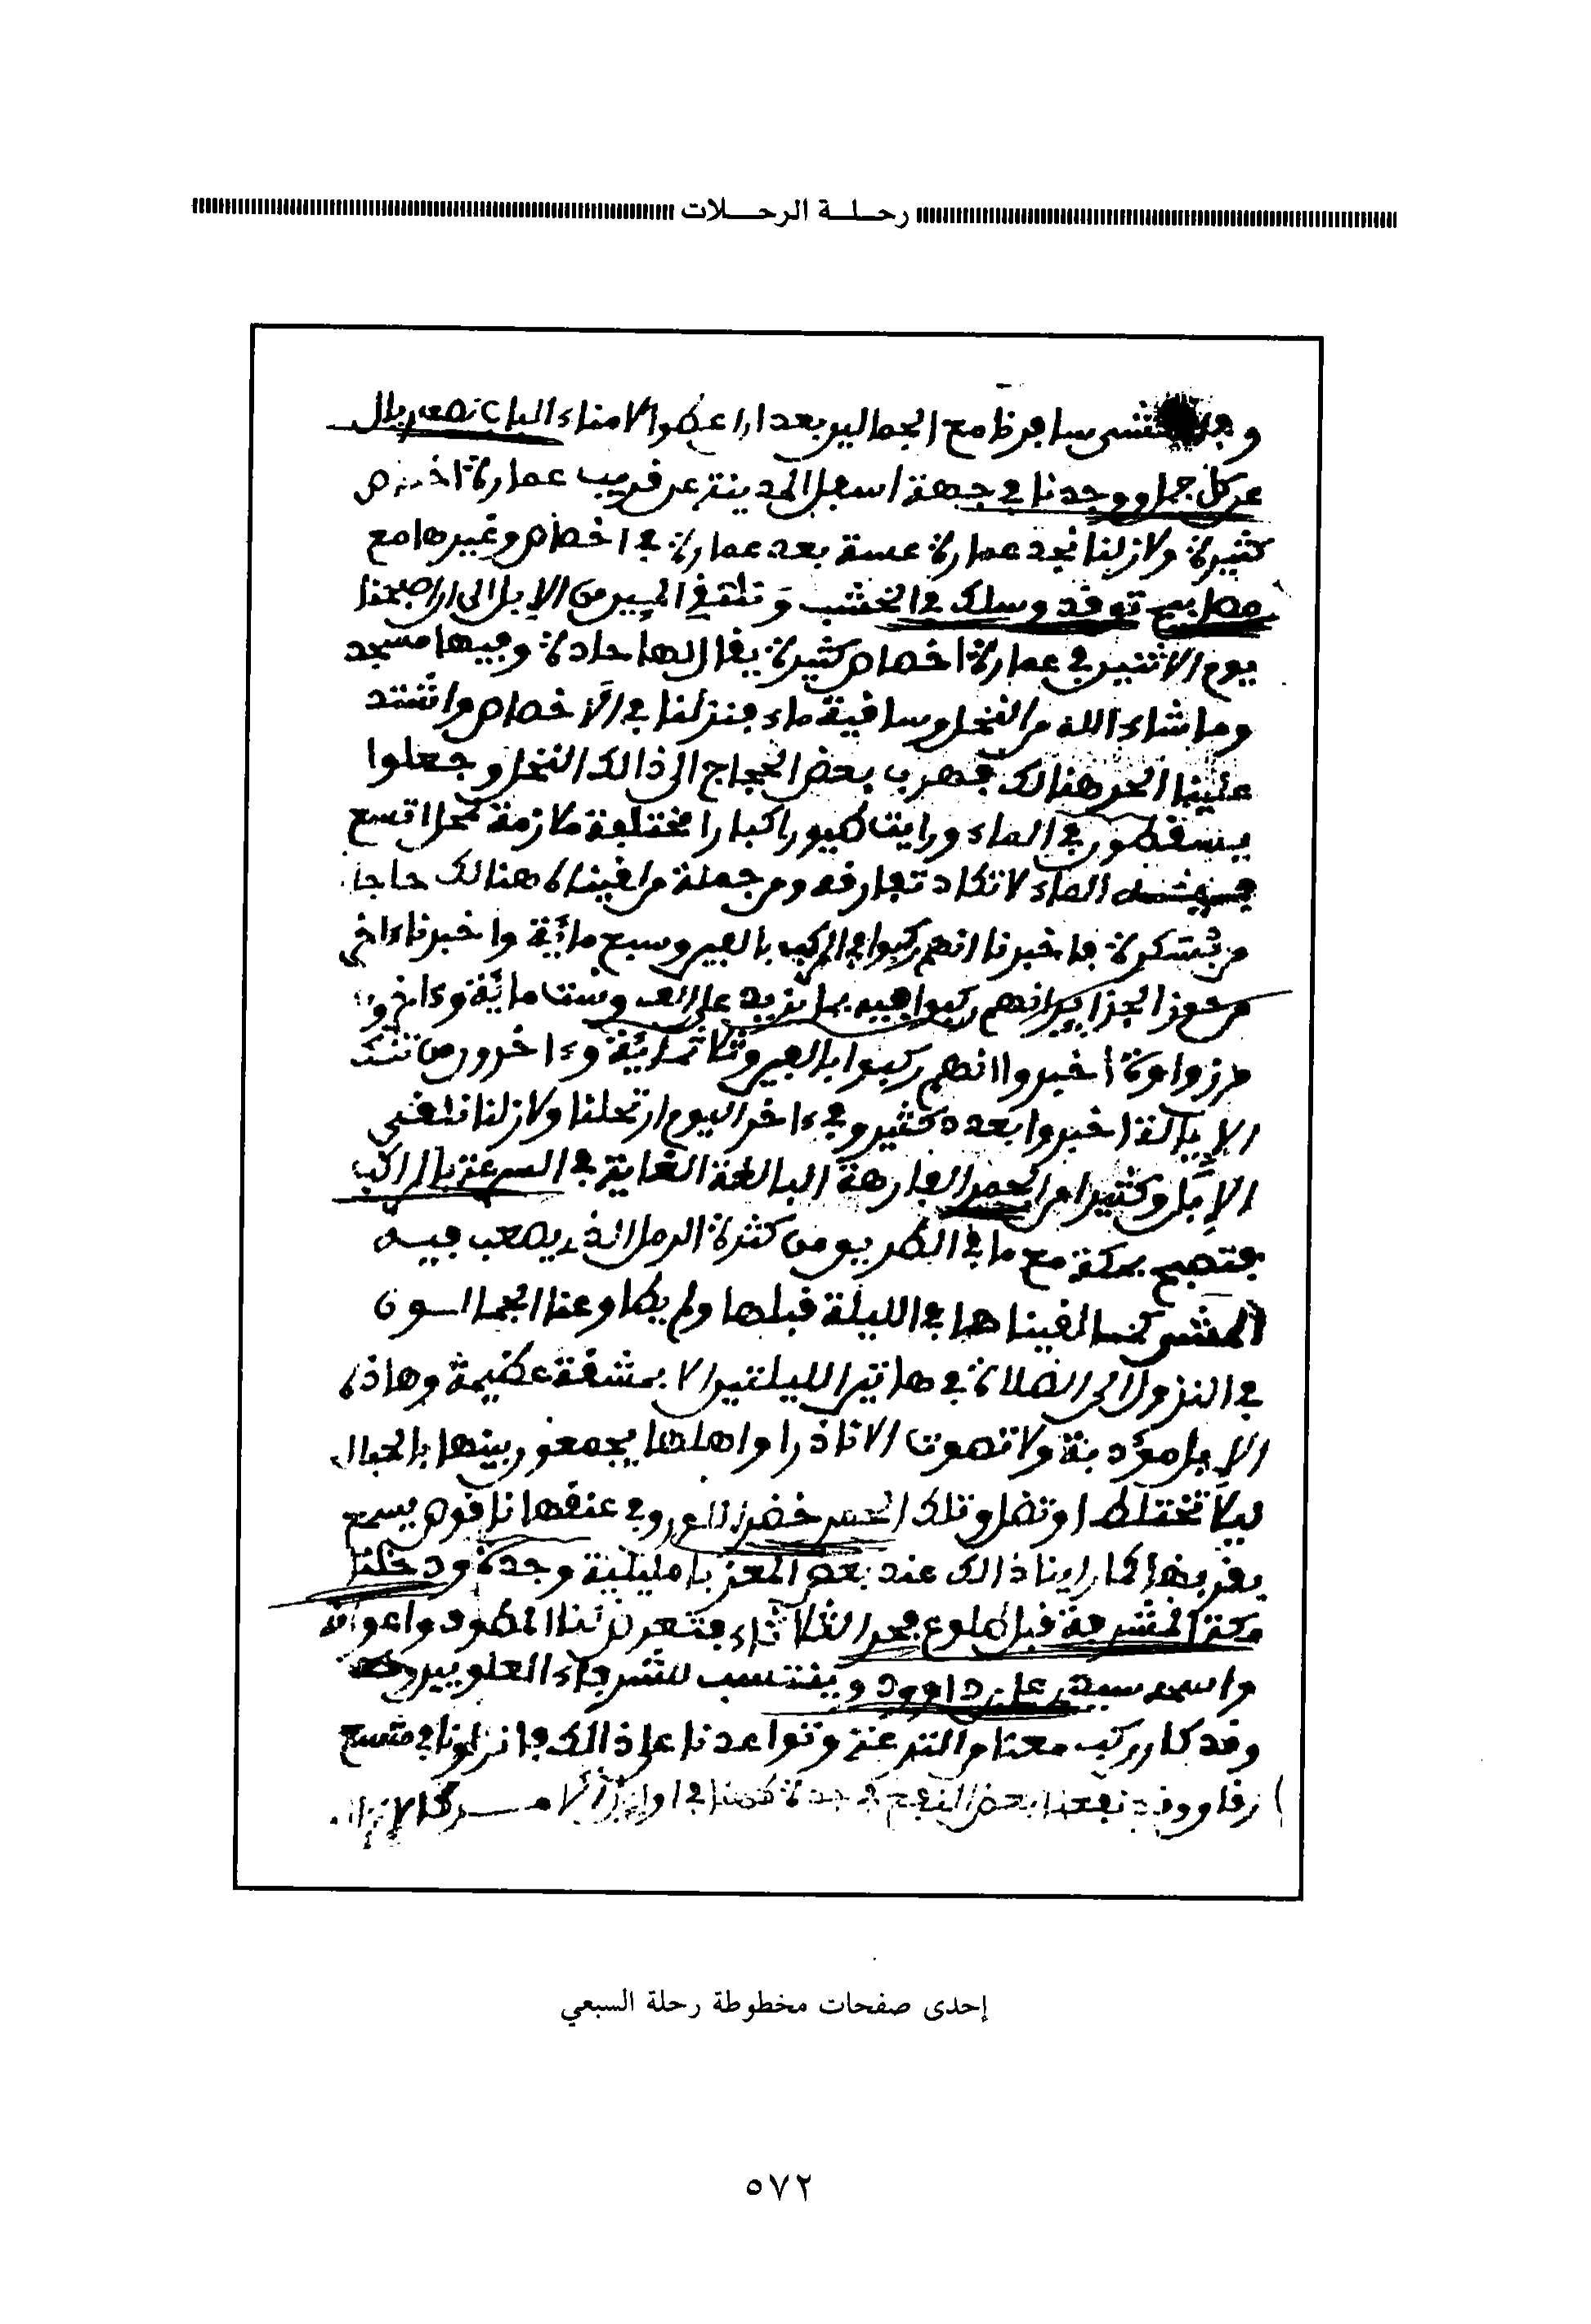 رحلة الرحلات
سافرنا مع الجمالين بعد ان اعطوا لامناء الباب نصف ريال
عن كل جمل ووجدنا في جهة اسفل المدينة عن قريب عمارة
كثيرة ولازلنا نجد عمارة عسة بعد عمارة في اخصاص وغيرها مع
مصابيح توقد وسلك في الخشب ونلتقي المسير من الابل الى ان اصبحنا
يوم الاثنين في عمارة اخصاص كثيرة يقال لها حادة وفيها مسجد
وما شاء الله من النخل وساقية ماء فنزلنا في الاخصاص واشتد
علينا الحر هنالك فهرب بعض الحجاج الى ذالك النخل وجعلوا
يسقطون في الماء ورايت طيورا كبارا مختلفة ملازمة لمحل اتسع
الماء لا تكاد تفارقه ومن جملة من لفيناه هنالك حاجا
من بسكرة فاخبرنا انهم ركبوا في المركب بالفين وسبع مائة واخبرنا ءاخر
من حوز الجزاير انهم ركبوا فيه بما يزيد على الف وست مائة وءاخرون
من زواوة اخبروا انهم ركبوا بالفين وثلاثمائة وءاخرون من
اخبروا بعدد كثير وفي ءاخر اليوم ارتحلنا ولازلنا نلتقي
الابل وكثيرا من الحمر الفارهة البالغة الغاية في السرعة بالراكب
فتصبح بمكة مع ما في الطريق من كثرة الرمل الذي يصعب فيه
المشي كما لفيناها في الليلة قبلها ولم يطاوعنا الجمالون
في النزول الى الصلاة في هاتين الليلتين الا بمشقة عظيمة وهاذه
الابل مؤدبة ولا تصوت الا نادرا واهلها يجمعون بينها بالحبال
ليلا تختلط او تضل وتلك الحمر خضر اللون وفي عنقها ناقوس يسمع
بقربها كما راينا ذالك عند بعض المعز بامليلية وجدة ودخلنا
مكة المشرفة قبل طلوع فجر الثلاثاء فتعرض لنا المطوف واعوانه
واسمه سيد علي داوود وينتسب للشرفاء العلويين
وقد كان ركب معنا من الترعة وتواعدنا على ذالك فانزلونا في متسع
وقد نفعنا بعض النفع في جدة
إحدى صفحات مخطوطة رحلة السبعي
٥٧٢